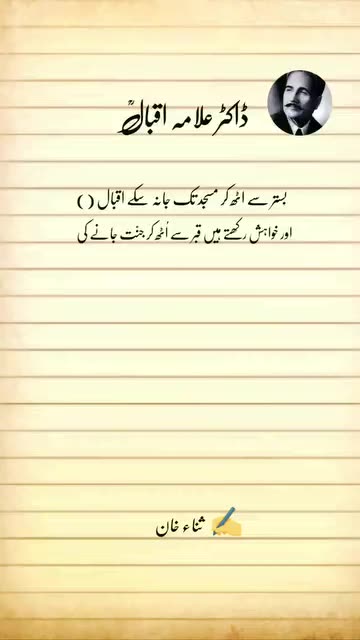 ڈاکٹر علامہ اقبالؒ
بستر سے اٹھ کر مسجد تک جا نہ سکے اقبال ( )
اور خواہش رکھتے ہیں قبر سے اُٹھ کر جنّت جانے کی
ثناء خان